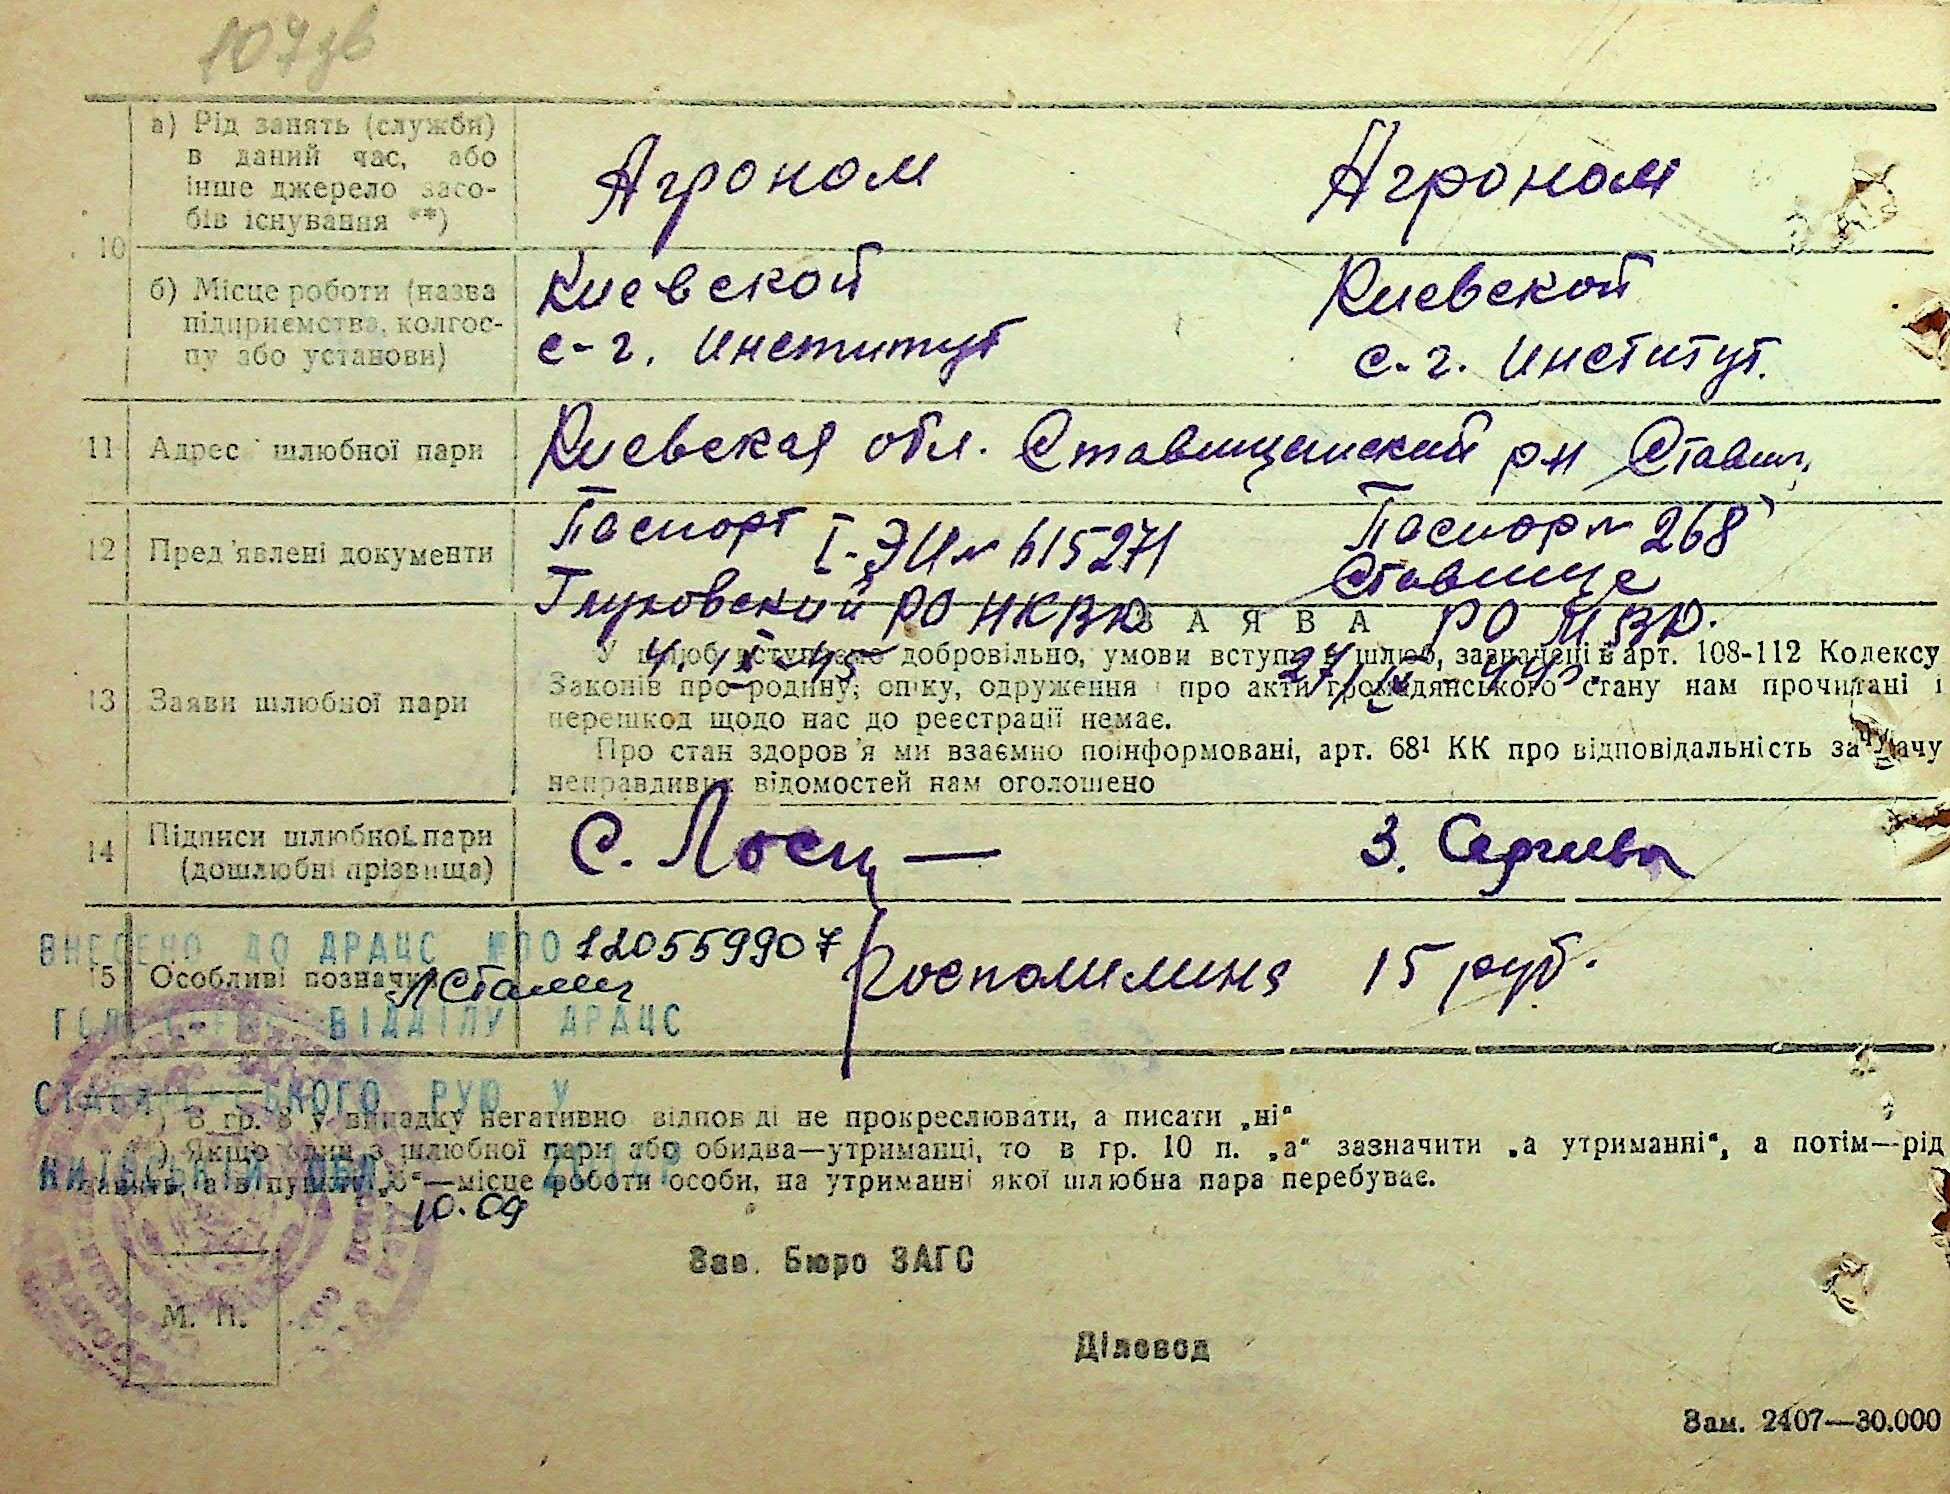 107 зв
а) Рід занять (служби)
в даний час, або
інше джерело засо-
бів існування **)
Агроном
Агроном
10
б) Місце роботи (назва
підприємства, колгос-
пу або установи)
Киевской
с-г. Институт
Киевской
с.-г. Институт.
11 Адрес шлюбної пари
Киевская обл. Ставищенский р-н
12 Пред'явлені документи
Паспорт I-ЭИ № 615271
РО НКВД
Паспорт 268
Ставище
РО МВД.
ЗАЯВА
13 Заяви шлюбної пари
У шлюб вступаємо добровільно, умови вступу в шлюб, зазначені в арт. 108-112 Кодексу
Законів про родину, опіку, одруження і про акти громадянського стану нам прочитані і
перешкод щодо нас до реєстрації немає.
Про стан здоров'я ми взаємно поінформовані, арт. 68¹ КК про відповідальність за дачу
неправдивих відомостей нам оголошено
14 Підписи шлюбної пари
(дошлюбні прізвища)
С.
З.
ВНЕСЕНО ДО ДРАЦС №00 120559907
15 Особливі позначки
Госпошлина 15 руб.
ВІДДІЛУ ДРАЦС
СТАВИЩЕНСЬКОГО РУЮ У
*) В гр. 8 у випадку негативно відповіді не прокреслювати, а писати „ні“
**) Якщо один з шлюбної пари або обидва—утриманці, то в гр. 10 п. „а“ зазначити „а утриманні“, а потім—рід
занять, а в пункті „б“—місце роботи особи, на утриманні якої шлюбна пара перебуває.
КИЇВСЬКІЙ ОБЛ.
10.09
Зав. Бюро ЗАГС
М. П.
Діловод
Зам. 2407—30.000